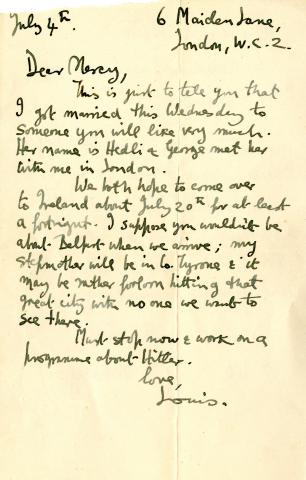 July 4th.
6 Maiden Lane,
London, W.C.2.
Dear Mercy,
This is just to tele you that
I got married this Wednesday to
someone you will like very much.
Her name is Hedli & George met her
with me in London.
We both hope to come over
to Ireland about July 20th for at least
a fortnight. I suppose you wouldn't be
about Belfast when we arrive; my
stepmother will be in Co. Tyrone & it
may be rather forlorn hitting that
great city with no one we want to
see there.
Must stop now & work on a
programme about Hitler.
love,
Louis.